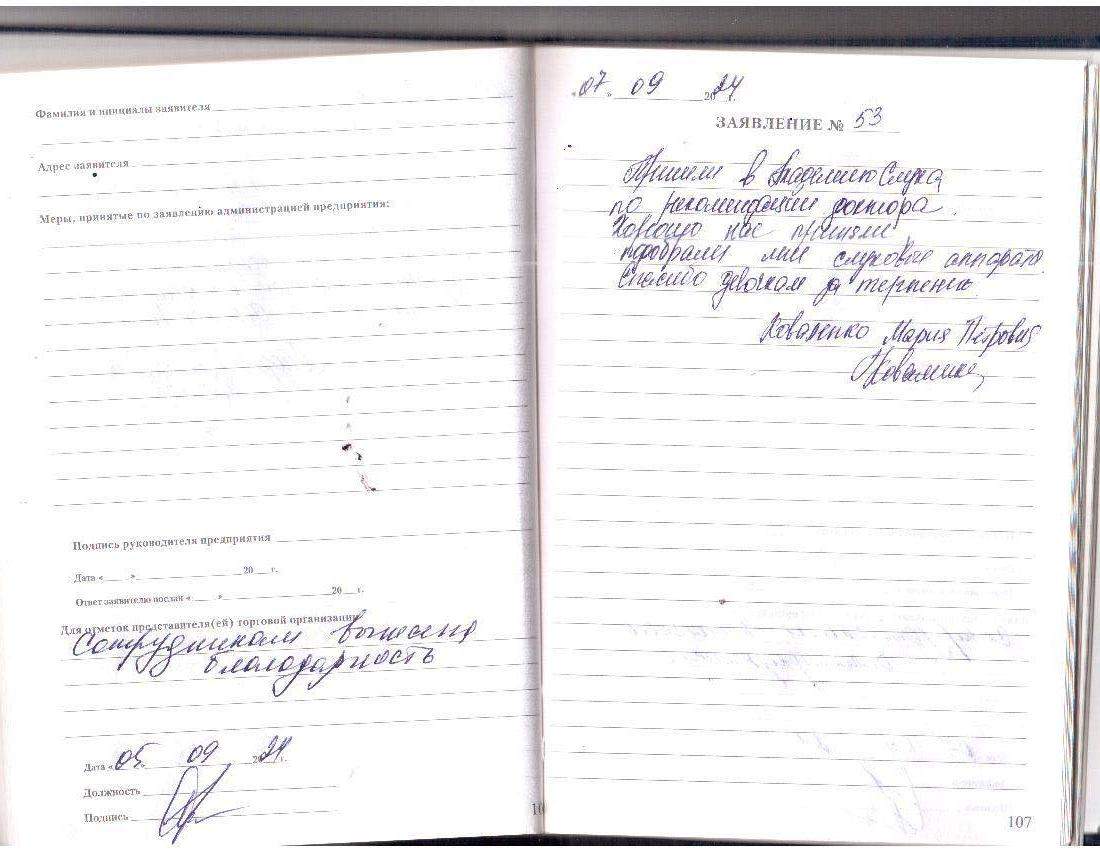 Фамилия и инициалы заявителя
Адрес заявителя
Меры, принятые по заявлению администрацией предприятия:
Подпись руководителя предприятия
Дата « » 20 г.
Ответ заявителю послан « » 20 г.
Для отметок представителя(ей) торговой организации
Сотрудникам вынесена
благодарность
Дата «05» 09 2024 г.
Должность
Подпись
10
«07» 09 2024 г.
ЗАЯВЛЕНИЕ № 53
Пришли в Академию Слуха
по рекомендации доктора.
Хорошо нас приняли,
подобрали мне слуховые аппараты.
Спасибо девочкам за терпение.
Коваленко Мария
107